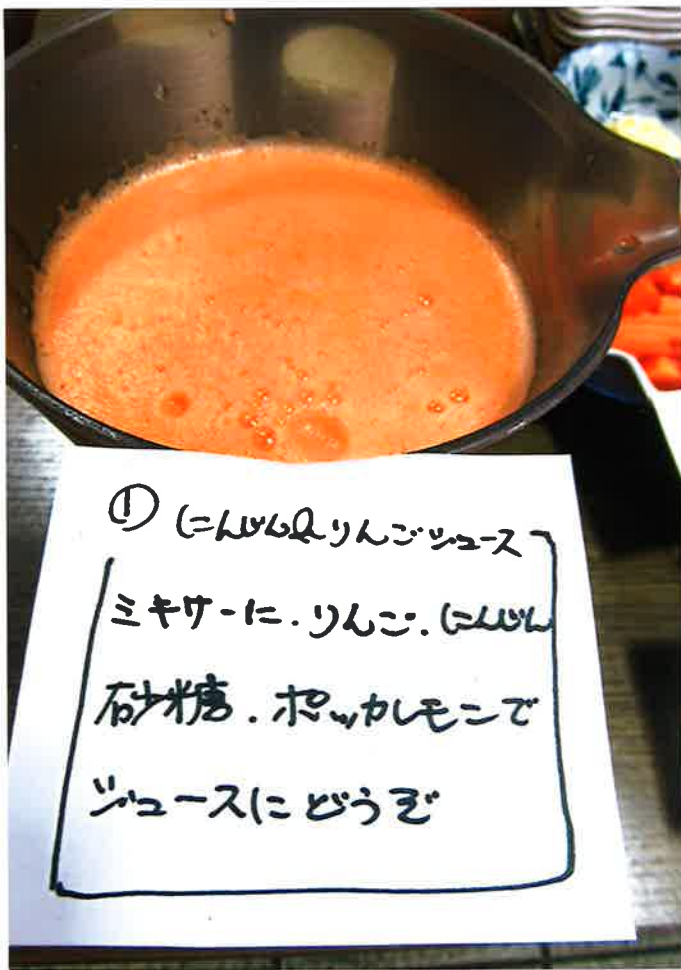 ① にんじん&りんごジュース
ミキサーに.りんご.にんじん
砂糖.ポッカレモンで
ジュースにどうぞ